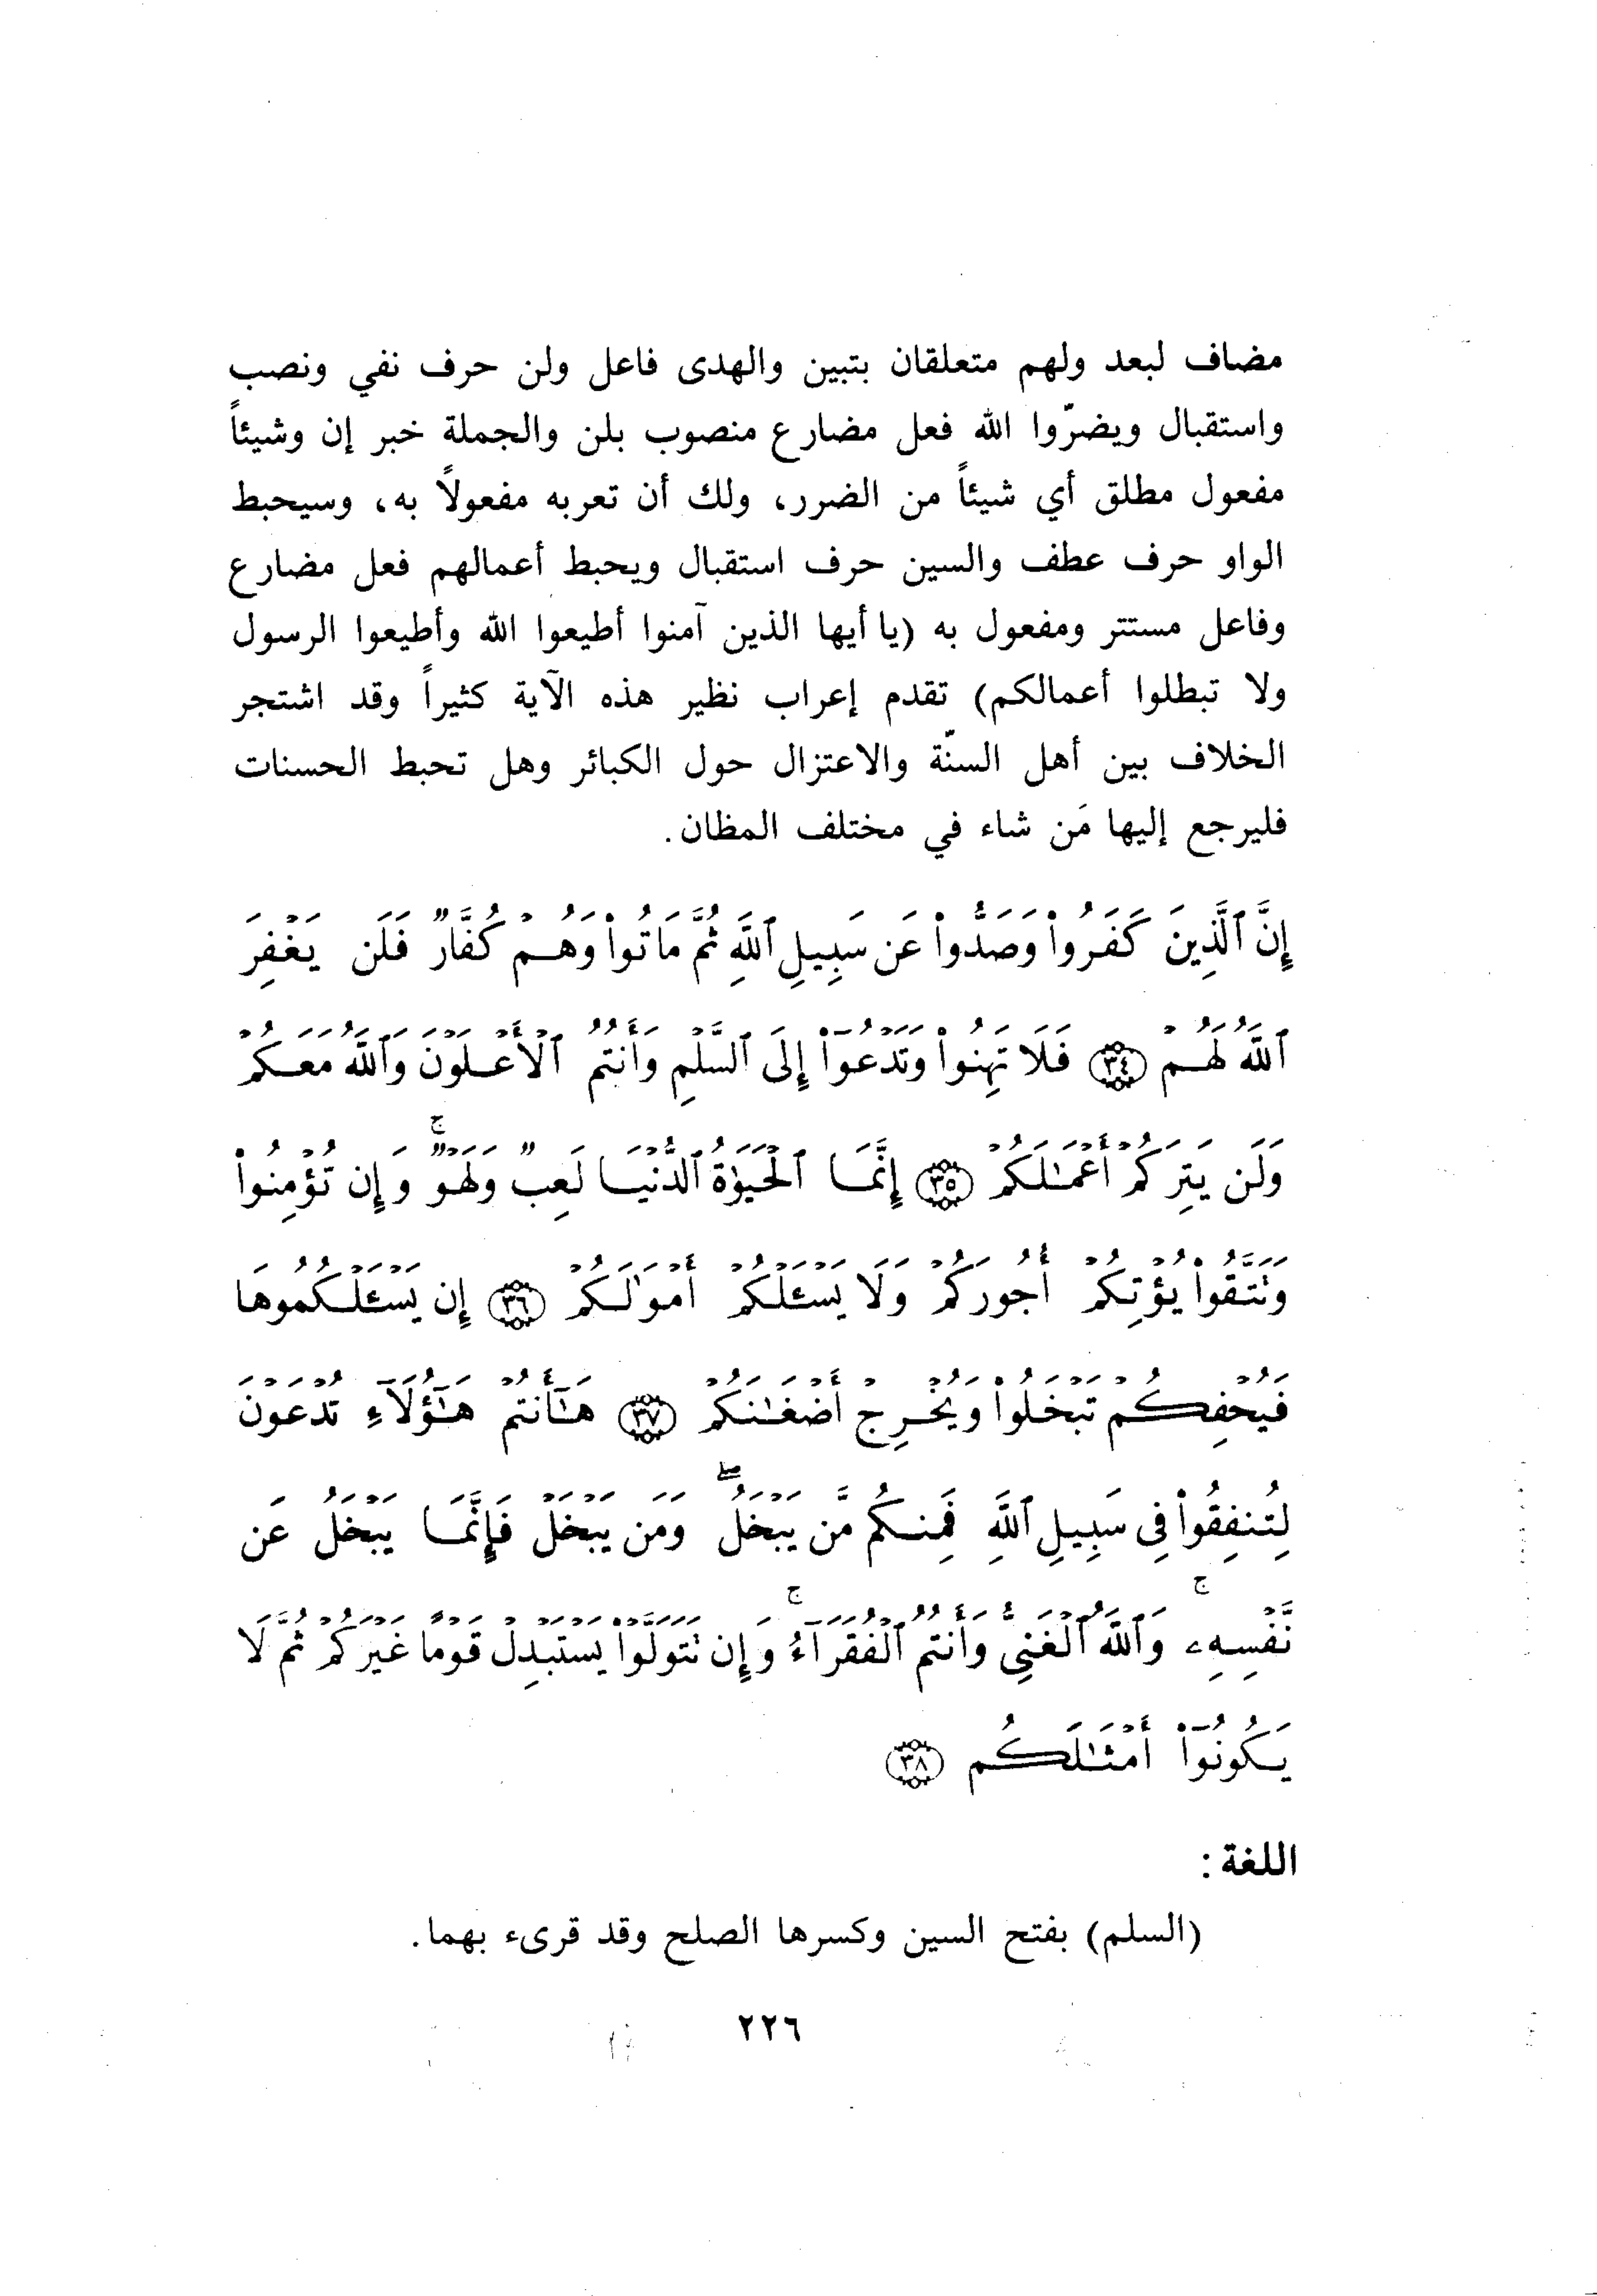 مضاف لبعد ولهم متعلقان بتبين والهدى فاعل ولن حرف نفي ونصب
واستقبال ويضرّوا الله فعل مضارع منصوب بلن والجملة خبر إن وشيئاً
مفعول مطلق أي شيئاً من الضرر، ولك أن تعربه مفعولاً به، وسيحبط
الواو حرف عطف والسين حرف استقبال ويحبط أعمالهم فعل مضارع
وفاعل مستتر ومفعول به (يا أيها الذين آمنوا أطيعوا الله وأطيعوا الرسول
ولا تبطلوا أعمالكم) تقدم إعراب نظير هذه الآية كثيراً وقد اشتجر
الخلاف بين أهل السنّة والاعتزال حول الكبائر وهل تحبط الحسنات
فليرجع إليها مَن شاء في مختلف المظان.
إِنَّ ٱلَّذِينَ كَفَرُواْ وَصَدُّواْ عَن سَبِيلِ ٱللَّهِ ثُمَّ مَاتُواْ وَهُمْ كُفَّارٌ فَلَن يَغْفِرَ
ٱللَّهُ لَهُمْ ﴿٣٤﴾ فَلَا تَهِنُواْ وَتَدْعُوٓاْ إِلَى ٱلسَّلْمِ وَأَنتُمُ ٱلْأَعْلَوْنَ وَٱللَّهُ مَعَكُمْ
وَلَن يَتِرَكُمْ أَعْمَٰلَكُمْ ﴿٣٥﴾ إِنَّمَا ٱلْحَيَوٰةُ ٱلدُّنْيَا لَعِبٌ وَلَهْوٌ ۚ وَإِن تُؤْمِنُواْ
وَتَتَّقُواْ يُؤْتِكُمْ أُجُورَكُمْ وَلَا يَسْـَٔلْكُمْ أَمْوَٰلَكُمْ ﴿٣٦﴾ إِن يَسْـَٔلْكُمُوهَا
فَيُحْفِكُمْ تَبْخَلُواْ وَيُخْرِجْ أَضْغَٰنَكُمْ ﴿٣٧﴾ هَـٰٓأَنتُمْ هَـٰٓؤُلَآءِ تُدْعَوْنَ
لِتُنفِقُواْ فِي سَبِيلِ ٱللَّهِ فَمِنكُم مَّن يَبْخَلُ ۖ وَمَن يَبْخَلْ فَإِنَّمَا يَبْخَلُ عَن
نَّفْسِهِۦ ۚ وَٱللَّهُ ٱلْغَنِيُّ وَأَنتُمُ ٱلْفُقَرَآءُ ۚ وَإِن تَتَوَلَّوْاْ يَسْتَبْدِلْ قَوْمًا غَيْرَكُمْ ثُمَّ لَا
يَكُونُوٓاْ أَمْثَٰلَكُم ﴿٣٨﴾
اللغة :
(السلم) بفتح السين وكسرها الصلح وقد قرىء بهما.
٢٢٦